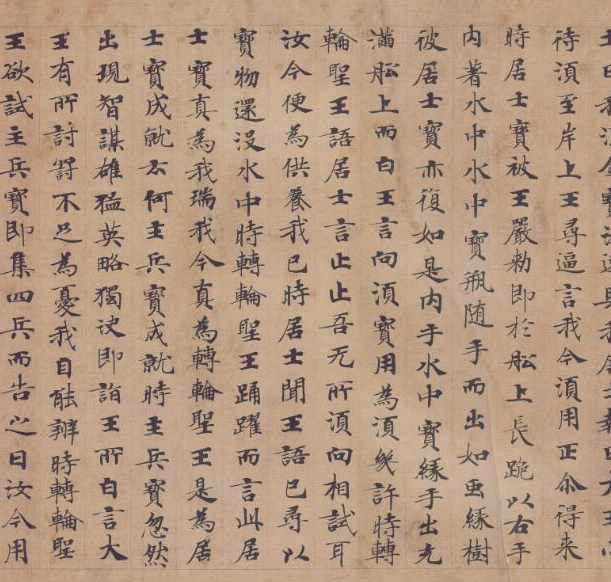 待須至岸上王尋逼言我今須用正尒得来
時居士寶被王嚴勑即於舩上長跪以右手
内著水中水中寶瓶随手而出如虫緣樹
彼居士寶亦復如是内手水中寶緣手出充
滿舩上而白王言向須寶用為須幾許時轉
輪聖王語居士言止止吾无所須向相試耳
汝今便為供養我已時居士聞王語已尋以
寶物還没水中時轉輪聖王踊躍而言此居
士寶真為我瑞我今真為轉輪聖王是為居
士寶成就云何主兵寶成就時主兵寶忽然
出現智謀雄猛英略獨決即詣王所白言大
王有所討罸不足為憂我自能辦時轉輪聖
王欲試主兵寶即集四兵而告之曰汝今用